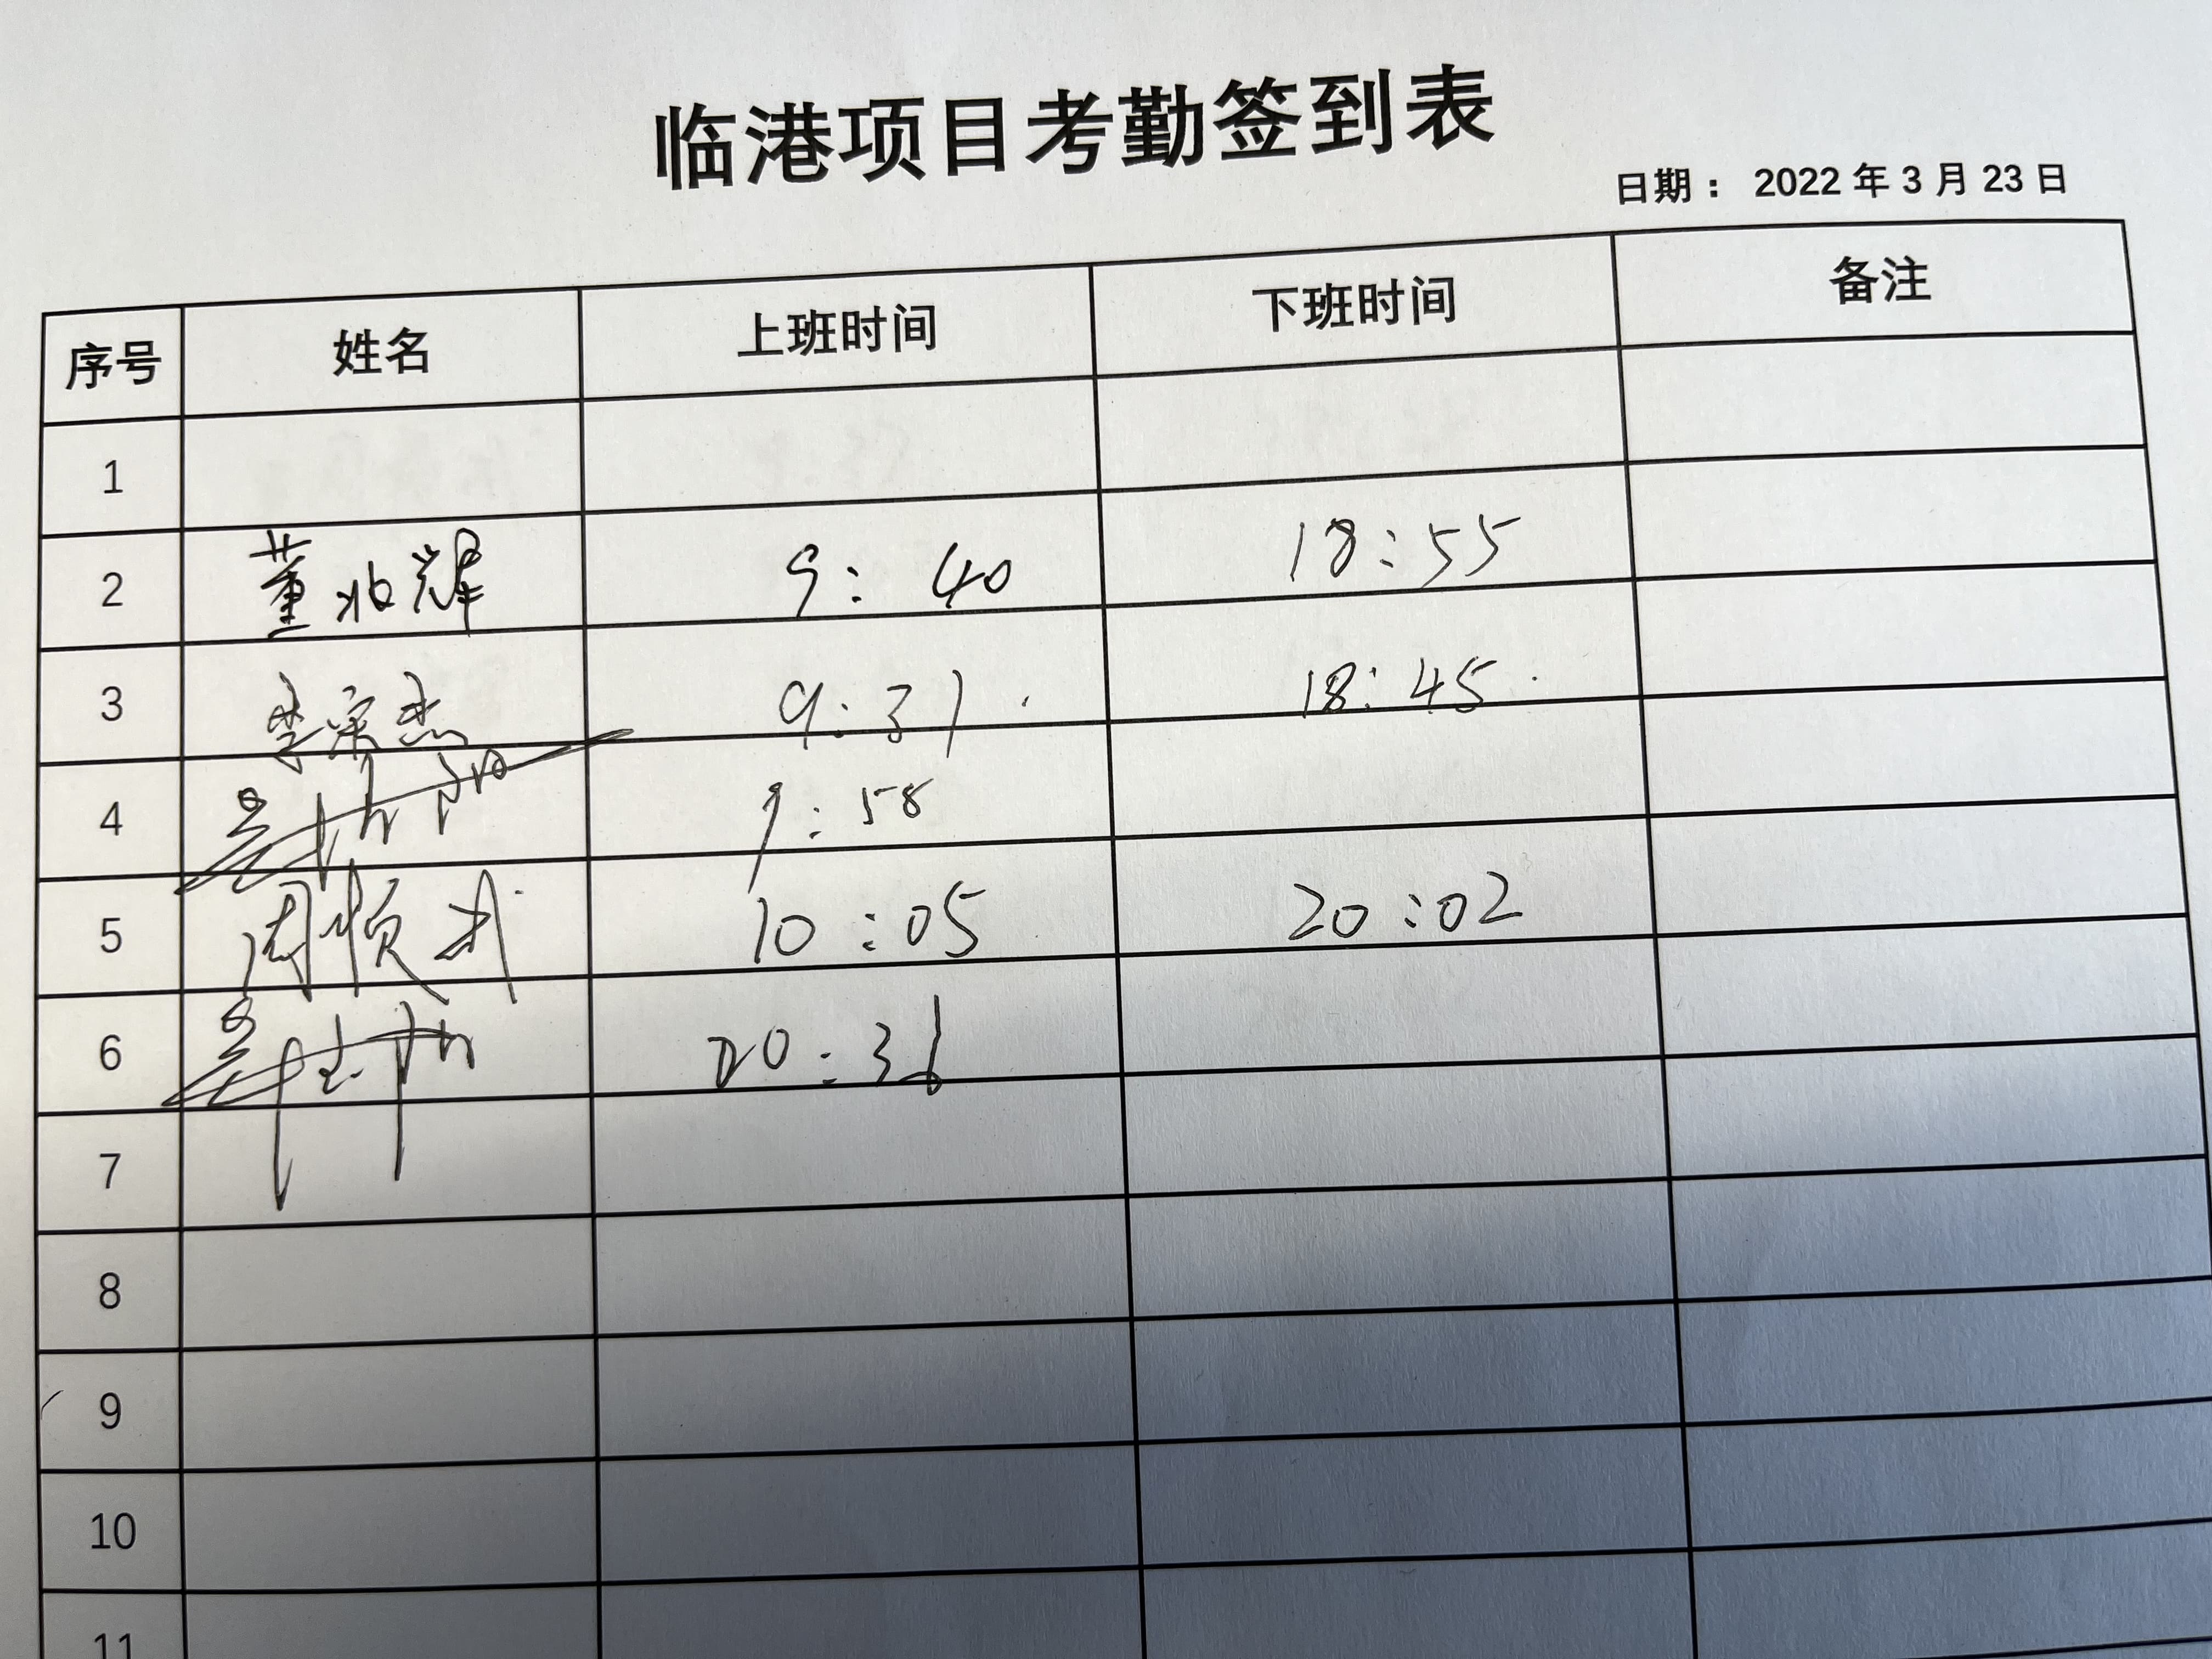 临港项目考勤签到表
日期： 2022 年 3 月 23 日
序号 姓名 上班时间 下班时间 备注
1
2 董兆辉 9: 40 18:55
3 李宗杰 9:31 18:45
4 9:58
5 周顺利 10:05 20:02
6 20:31
7
8
9
10
11